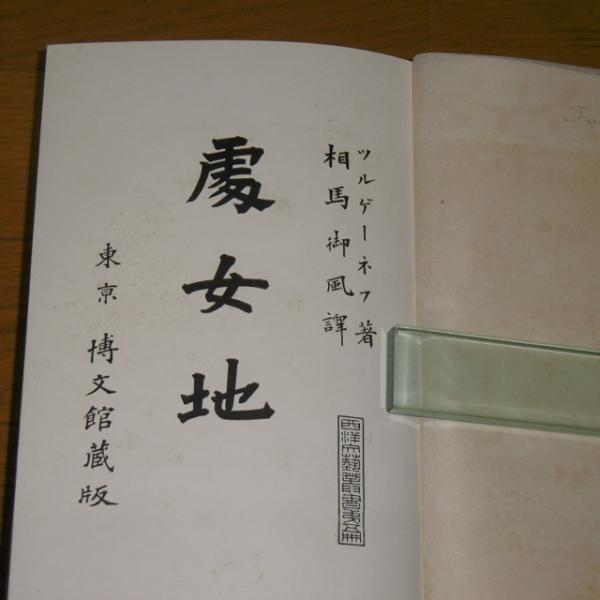 ツルゲーネフ著
相馬御風譯
西洋文藝叢書
處女地
東京 博文館蔵版